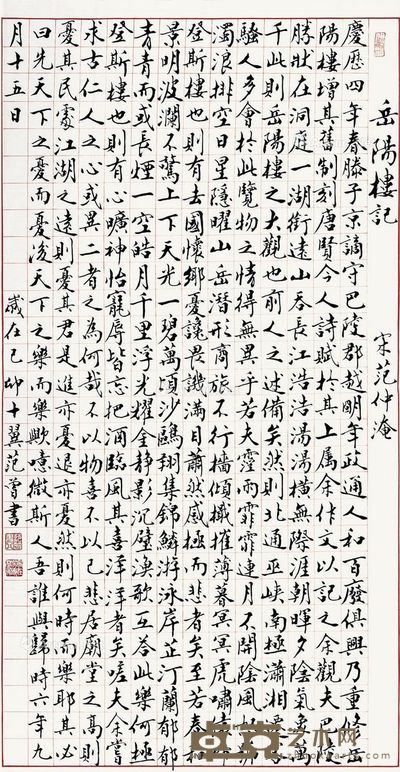 岳陽樓記 宋 范仲淹
慶歷四年春滕子京謫守巴陵郡越明年政通人和百廢俱興乃重修岳
陽樓增其舊制刻唐賢今人詩賦於其上屬余作文以記之余觀夫巴陵
勝狀在洞庭一湖銜遠山吞長江浩浩湯湯橫無際涯朝暉夕陰氣象萬
千此則岳陽樓之大觀也前人之述備矣然則北通巫峽南極瀟湘遷客
騷人多會於此覽物之情得無異乎若夫霪雨霏霏連月不開陰風怒
濁浪排空日星隱曜山岳潛形商旅不行檣傾楫摧薄暮冥冥虎嘯猿
登斯樓也則有去國懷鄉憂讒畏譏滿目蕭然感極而悲者矣至若春
景明波瀾不驚上下天光一碧萬頃沙鷗翔集錦鱗游泳岸芷汀蘭郁郁
青青而或長煙一空皓月千里浮光耀金靜影沉璧漁歌互答此樂何極
登斯樓也則有心曠神怡寵辱皆忘把酒臨風其喜洋洋者矣嗟夫余嘗
求古仁人之心或異二者之為何哉不以物喜不以己悲居廟堂之高則
憂其民處江湖之遠則憂其君是進亦憂退亦憂然則何時而樂耶其必
曰先天下之憂而憂後天下之樂而樂歟噫微斯人吾誰與歸時六年九
月十五日 歲在己卯十翼范曾書
艺术网